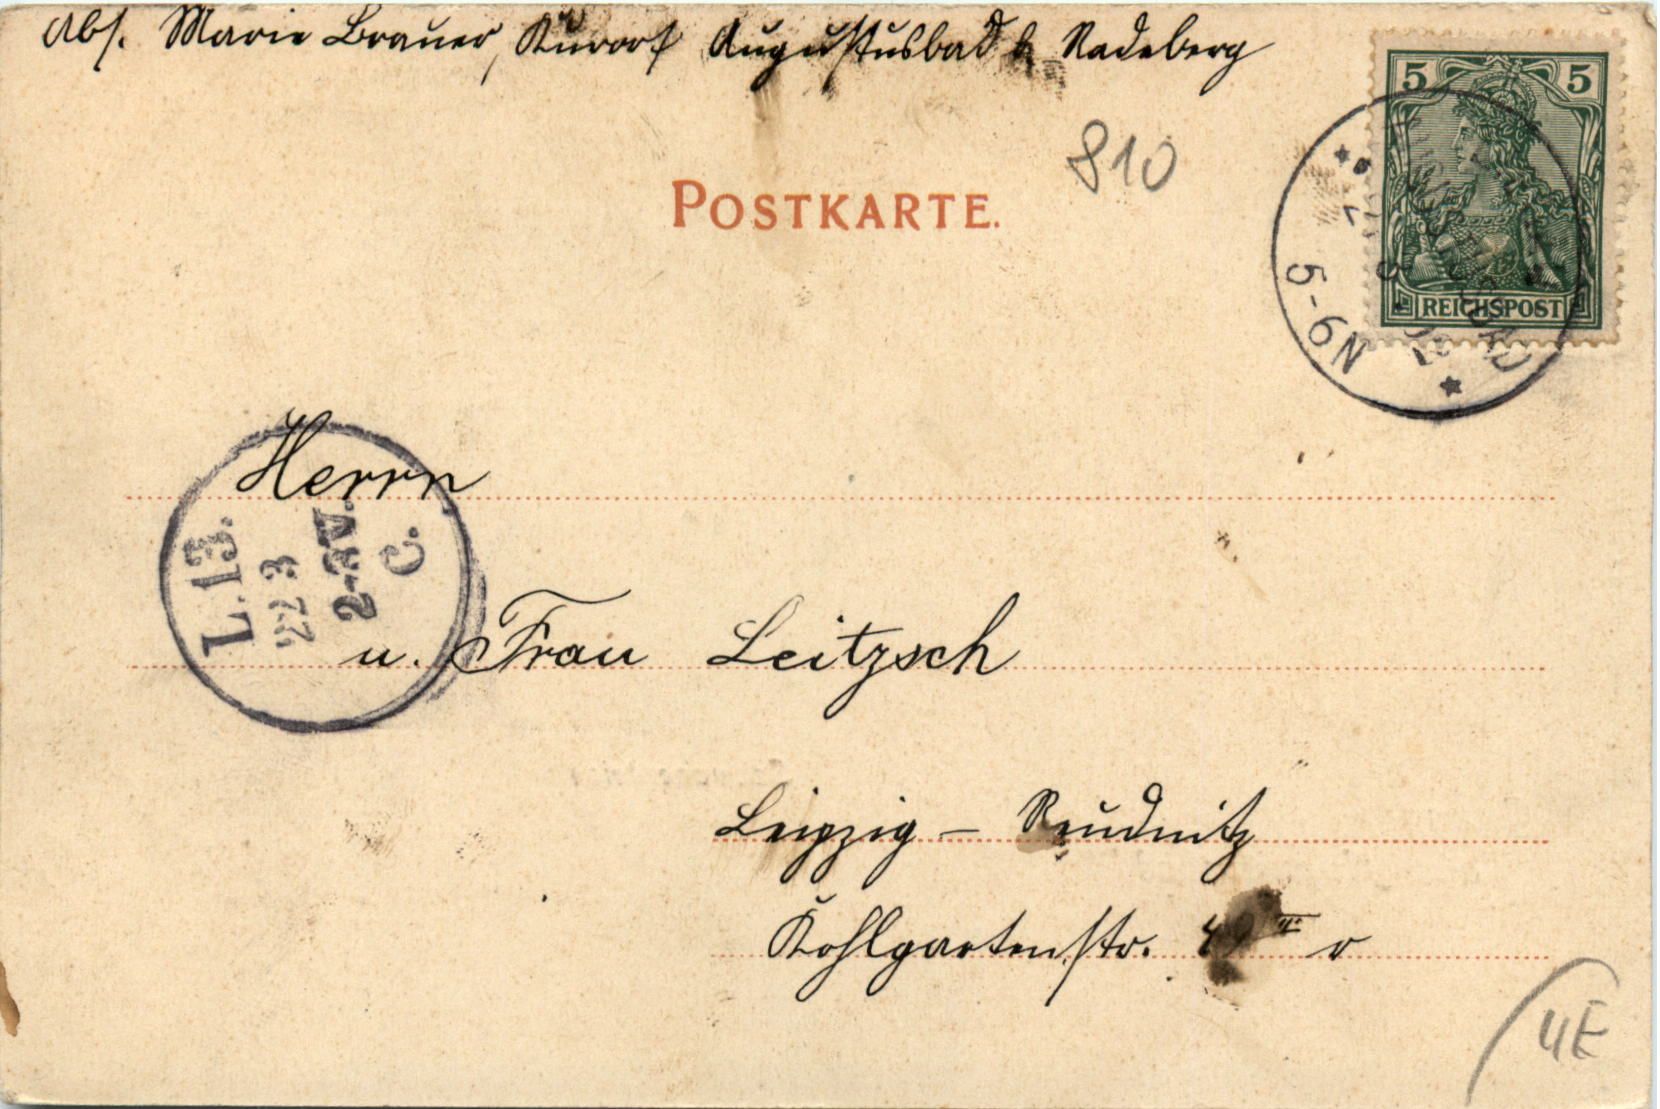 Abs. Marie Brauer, Kurort Augustusbad b Radeberg
5 5
810
POSTKARTE.
REICHSPOST
5-6N
Herrn
L.13.
22 3
2-3N.
C.
u. Frau Leitzsch
Leipzig – Reudnitz
Kohlgartenstr. r
4E